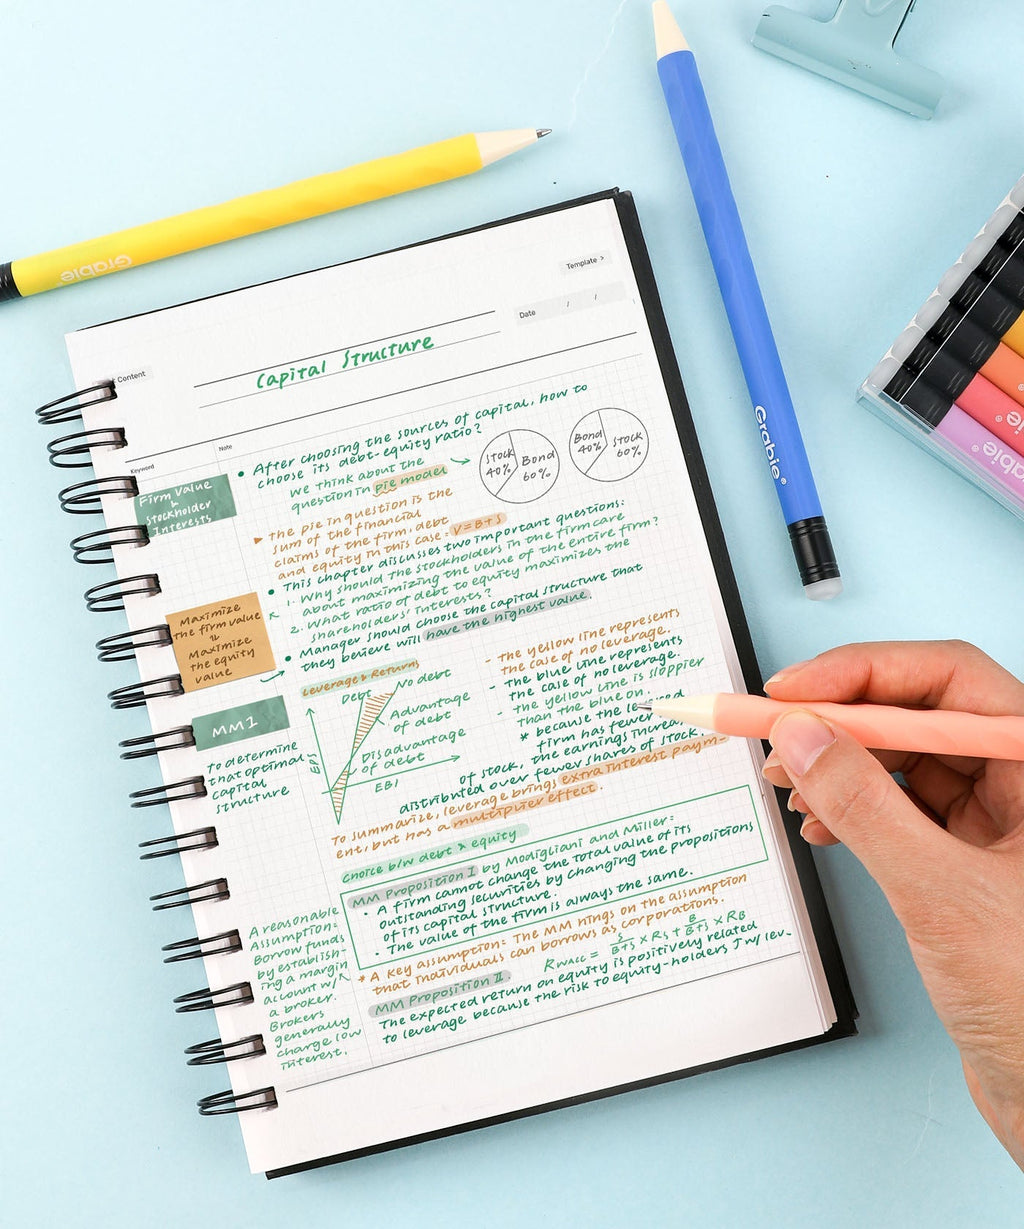 Grabie
Grabie®
Grabie
Grabie
Template >
Date / /
Content
Capital Structure
Keyword
Note
Firm Value
&
Stockholder
Interests
Maximize
the firm value
Maximize
the equity
value
MM1
To determine
that optimal
capital
structure
A reasonable
Assumption:
Borrow funds
by establish-
ing a margin
account w/
a broker.
Brokers
generally
charge low
interest.
• After choosing the sources of capital, how to
choose its debt-equity ratio?
We think about the
question in pie model
Stock
40%
Bond
60%
Bond
40%
Stock
60%
▸ The pie in question is the
sum of the financial
claims of the firm, debt
and equity in this case: V=B+S
• This chapter discusses two important questions:
1. Why should the stockholders in the firm care
about maximizing the value of the entire firm?
2. What ratio of debt to equity maximizes the
shareholders' interests?
• Manager should choose the capital structure that
they believe will have the highest value.
Leverage & Returns
Debt
No debt
Advantage
of debt
Disadvantage
of debt
EPS
EBI
- The yellow line represents
the case of no leverage.
- The blue line represents
the case of no leverage.
- The yellow line is sloppier
than the blue on.
* because the
firm has fewer
of stock, the earnings increa
distributed over fewer shares of stock.
To summarize, leverage brings extra interest paym-
ent, but has a multiplier effect.
Choice b/w debt & equity
MM Proposition I by Modigliani and Miller:
• A firm cannot change the total value of its
outstanding securities by changing the propositions
of its capital structure.
• The value of the firm is always the same.
* A key assumption: The MM hings on the assumption
that individuals can borrows as corporations.
RWACC = S/B+S × RS + B/B+S × RB
MM Proposition II
The expected return on equity is positively related
to leverage because the risk to equity-holders ↑ w/ lev-